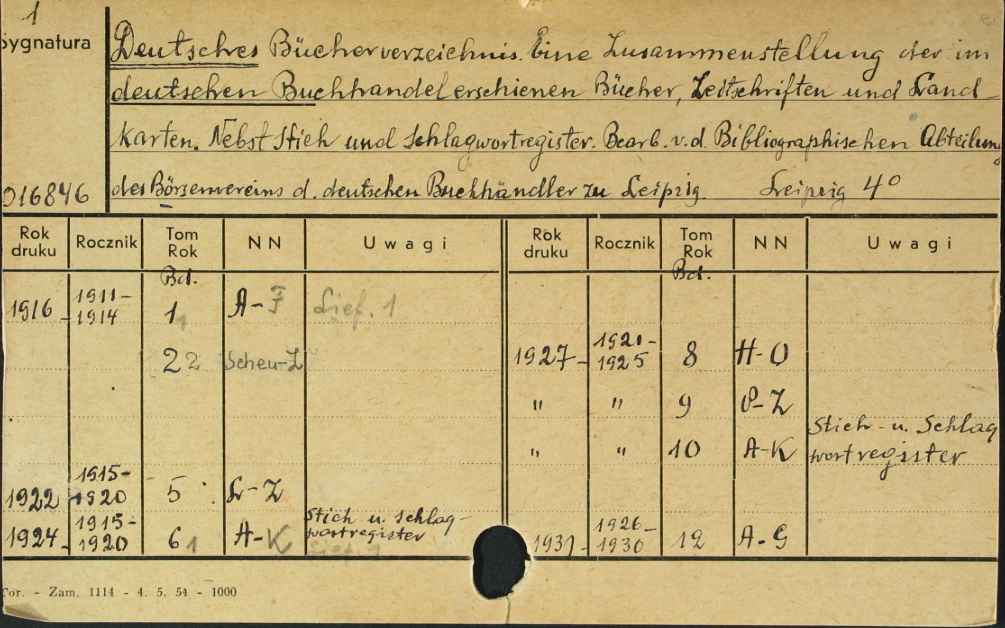 1
Sygnatura
Deutsches Bücherverzeichnis. Eine Zusammenstellung der im
deutschen Buchhandel erschienen Bücher, Zeitschriften und Land-
karten. Nebst Stich und Schlagwortregister. Bearb. v. d. Bibliographischen Abteilung
des Börsenvereins d. deutschen Buchhändler zu Leipzig. Leipzig 4°
016846
Rok druku Rocznik Tom Rok NN Uwagi Rok druku Rocznik Tom Rok NN Uwagi
Bd. Bd.
1916 1911-1914 1 1 A-F Lief. 1
2 2 Scheu-Z
1927 1921-1925 8 H-O
" " 9 P-Z
" " 10 A-K Stich- u. Schlagwortregister
1922 1915-1920 5 L-Z
1924 1915-1920 6 1 A-K Stich u. Schlag-
wortregister
1931 1926-1930 12 A-G
Tor. - Zam. 1114 - 4. 5. 54 - 1000